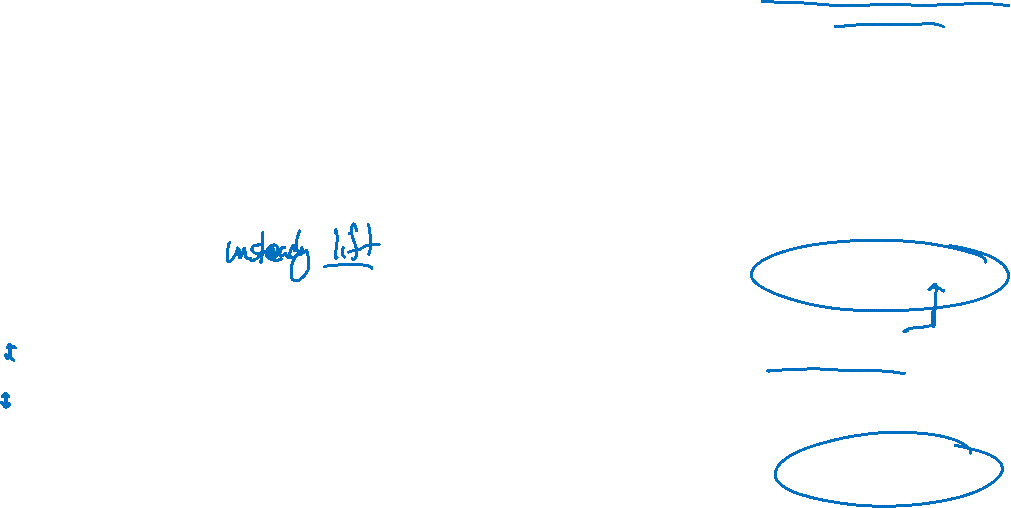 unsteady lift